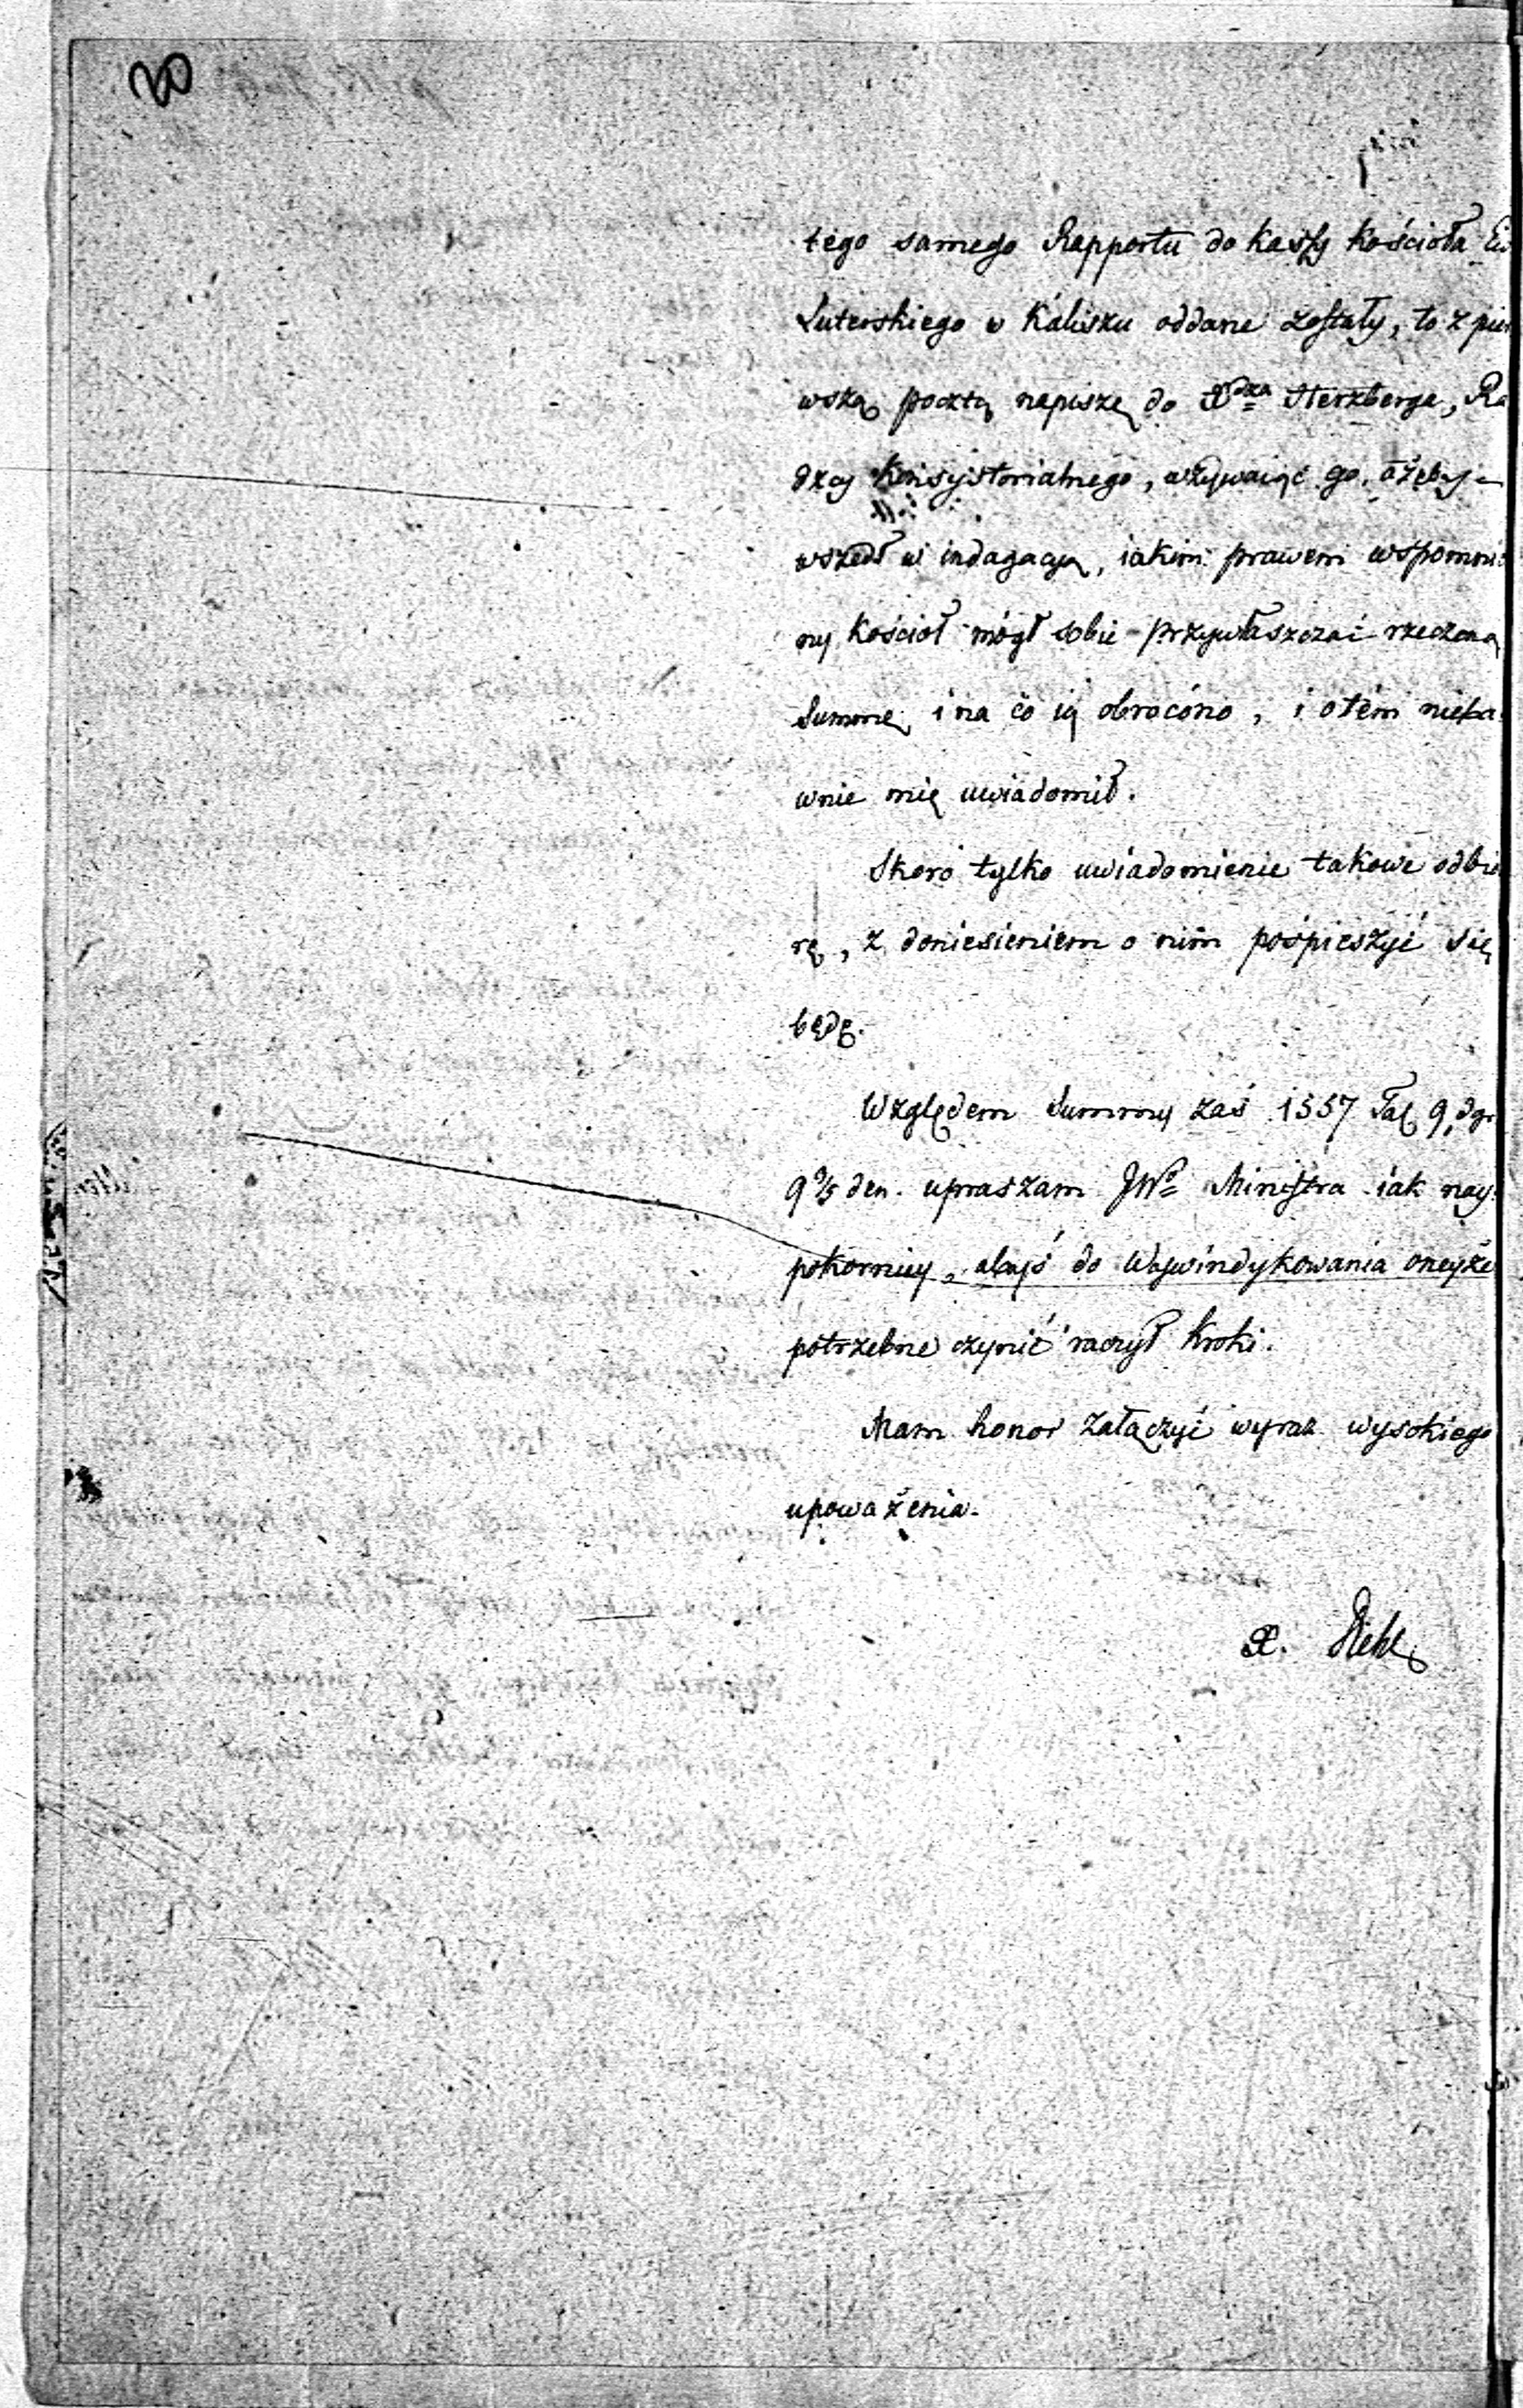 20
tego samego Rapportu do Kassy Kościoła Ew
Luterskiego w Kaliszu oddane zostały, to z pier
wszą pocztą napiszę do Xdza Sterzberga, Ra
dzcy Konsystorialnego, wzywaiąc go, ażeby
wszedł w indagacyą, iakim prawem wspomnio
ny Kościoł mógł sobie przywłaszczać rzeczoną
Summę, i na co ią obrócono, i o tém nieba
wnie mię uwiadomił.
Skoro tylko uwiadomienie takowe odbio
rę, z doniesieniem o nim pośpieszyć się
będę.
Względem Summy zaś 1557 Tal 9, dgr
9 3/5 den. upraszam JWo Ministra iak nay
pokorniey, abyś do Wywindykowania oneyże
potrzebne czynić raczył Kroki.
Mam honor załączyć wyraz wysokiego
upoważenia.
X. Diehl